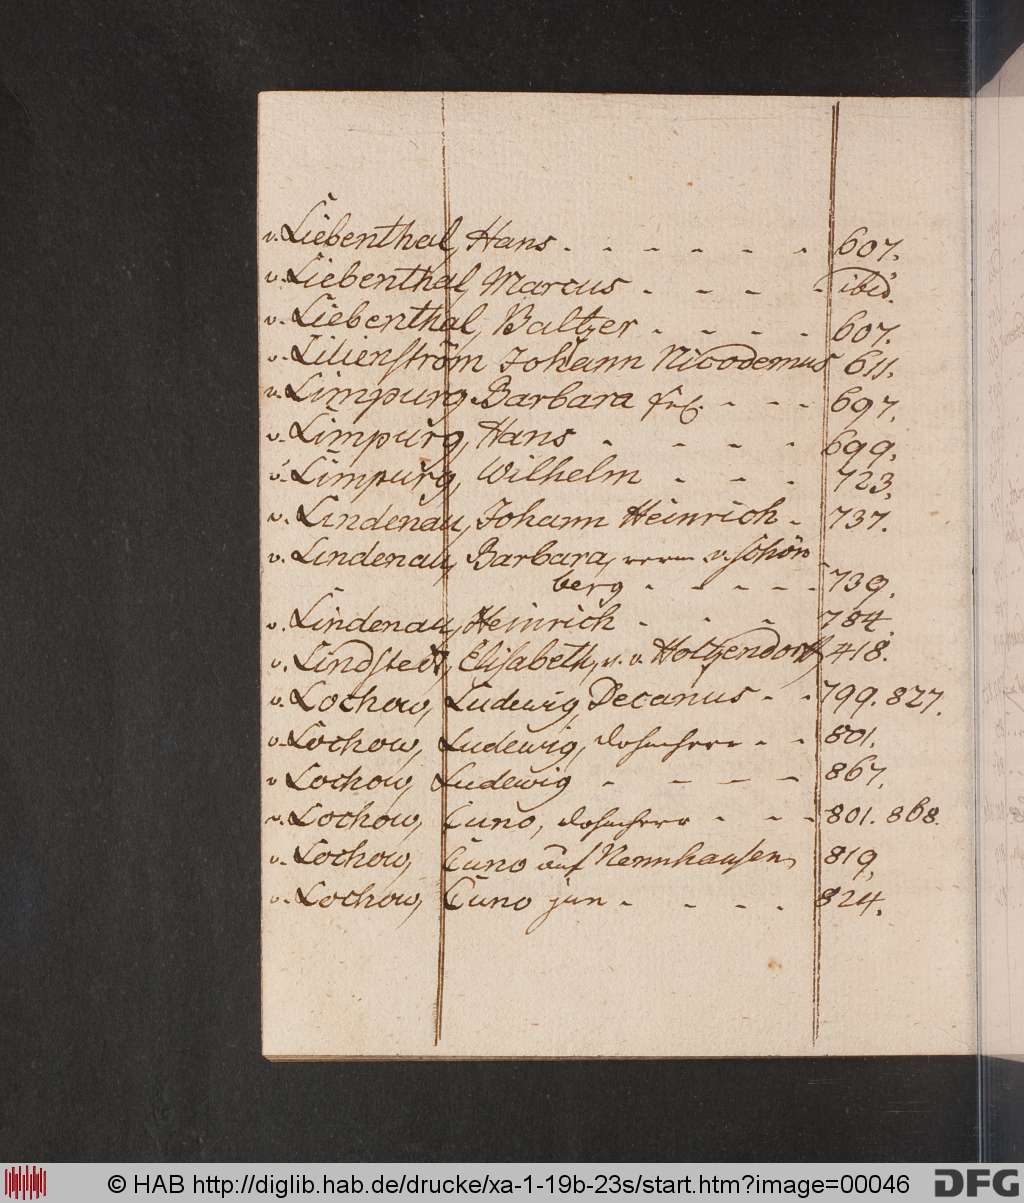 v. Liebenthal, Hans . - - - - - - 607.
v. Liebenthal, Marcus - - - - - ibid.
v. Liebenthal, Baltzer - - - - 607.
v. Lilienström Johann Nicodemus 611.
v. Limpurg, Barbara - - - 697.
v. Limpurg, Hans - - - - 699.
v. Limpurg, Wilhelm - - - - 723.
v. Lindenau, Johann Heinrich - 737.
v. Lindenau, Barbara, verm v. Schön
berg - - - - - 739.
v. Lindenau, Heinrich - - - 784.
v. Lindstedt, Elisabeth, v. v. Holtzendorff 418.
v. Lochow, Ludewig, Decanus - - 799. 827.
v. Lochow, Ludewig, Dohmherr - - 801.
v Lochow, Ludewig - - - - - 867.
v. Lochow, Cuno, Dohmherr - - - 801. 868.
v. Lochow, Cuno auf Nennhausen, 819.
v. Lochow, Cuno jun - - - - 824.
© HAB http://diglib.hab.de/drucke/xa-1-19b-23s/start.htm?image=00046
DFG